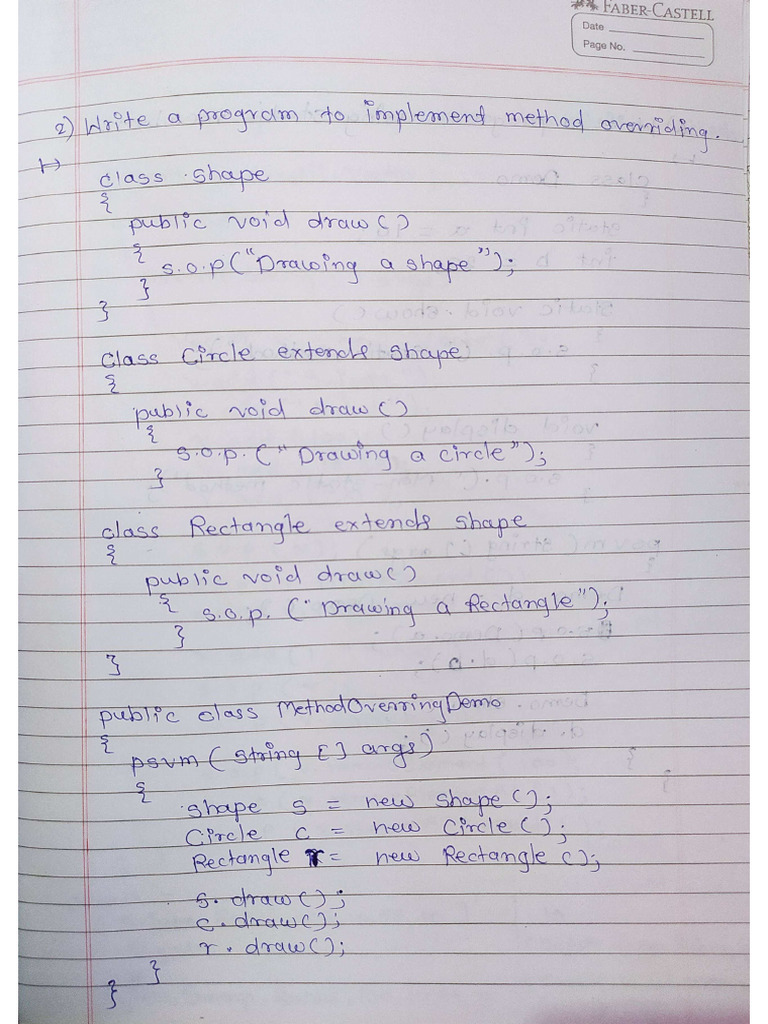 FABER-CASTELL
Date
Page No.
2) Write a program to implement method overriding.
class shape
{
public void draw()
{
s.o.p("Drawing a shape");
}
}
class Circle extends shape
{
public void draw()
{
s.o.p. ("Drawing a circle");
}
class Rectangle extends shape
{
public void draw()
{
s.o.p. ("Drawing a Rectangle");
}
}
public class MethodOverringDemo
{
psvm (string [] args)
{
shape s = new shape();
Circle c = new Circle();
Rectangle r = new Rectangle();
s.draw();
c.draw();
r.draw();
}
}